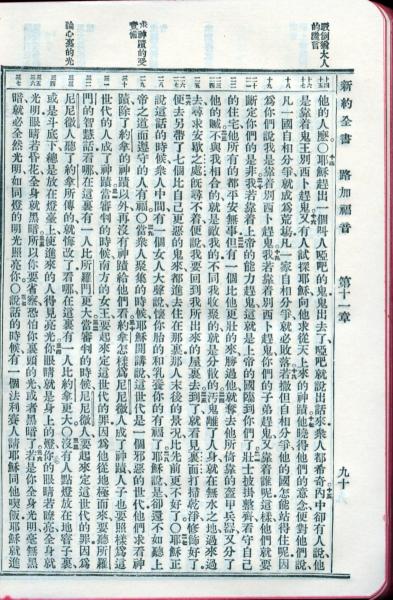 新約全書 路加福音 第十一章 九十
他的人麼〇耶穌趕出一個叫人啞吧的鬼鬼出去了啞吧就說出話來衆人都希奇內中卻有人說他
是靠着鬼王別西卜趕鬼又有人試探耶穌向他求從天上來的神蹟他曉得他們的意念便對他們說
凡一國自相分爭就成爲荒場凡一家自相分爭就必敗落若撒但自相分爭他的國怎能站得住呢因
爲你們說我是靠着別西卜趕鬼我若靠着別西卜趕鬼你們的子弟趕鬼又靠着誰呢這樣他們就要
斷定你們的是非我若靠着上帝的能力趕鬼這就是上帝的國臨到你們了壯士披掛整齊看守自己
的住宅他所有的都平安無事但有一個比他更壯的來勝過他就奪去他所倚靠的盔甲兵器又分了
他的贓不與我相合的就是敵我的不同我收聚的就是分散的汚鬼離了人身就在無水之地過來過
去尋求安歇之處旣尋不着便說我要回到我所出來的屋裏去到了就看見裏面打掃乾淨修飾好了
便去另帶了七個比自己更惡的鬼來都進去住在那裏那人末後的景況比先前更不好了〇耶穌正
說這話的時候衆人中間有一個女人大聲說懷你胎的和乳養你的有福了耶穌說是卻還不如聽上
帝之道而遵守的人有福〇當衆人聚集的時候耶穌開講說這世代是一個邪惡的世代他們求看神
蹟除了約拿的神蹟以外再沒有神蹟給他們看約拿怎樣爲尼尼微人成了神蹟人子也要照樣爲這
世代的人成了神蹟當審判的時候南方的女王要起來定這世代的罪因爲他從地極而來要聽所羅
門的智慧話看哪在這裏有一人比所羅門更大當審判的時候尼尼微人要起來定這世代的罪因爲
尼尼微人聽了約拿所傳的就悔改了看哪在這裏有一人比約拿更大〇沒有人點燈放在地窨子裏
或是斗底下總是放在燈臺上使進來的人得見亮光你眼睛就是身上的燈你的眼睛若瞭亮全身就
光明眼睛若昏花全身就黑暗所以你要省察恐怕你裏頭的光或者黑暗了若是你全身光明毫無黑
暗就必全然光明如同燈的明光照亮你〇說話的時候有一個法利賽人請耶穌同他喫飯耶穌就進
求神蹟的受
責備
論心裏的光